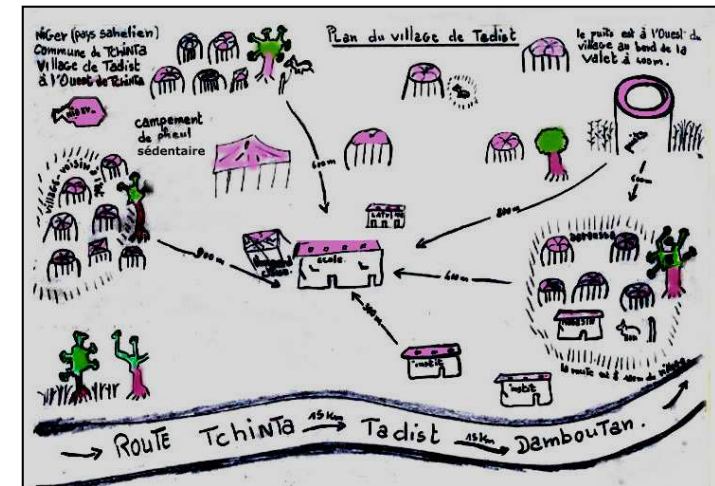 Niger (pays sahelien)
Commune de Tchinta
Village de Tadist
à l'Ouest de Tchinta
Plan du village de Tadist
le puits est à l'Ouest du
village au bord de la
valet à 400m.
NIGER
campement
de pheul
sédentaire
600m
village-voisin à 1km
latrine
800m
école
900m
400m
300m
instit
instit
magasin
la route est à 100m du village
→ ROUTE Tchinta 15Km → Tadist 15Km → Damboutan.